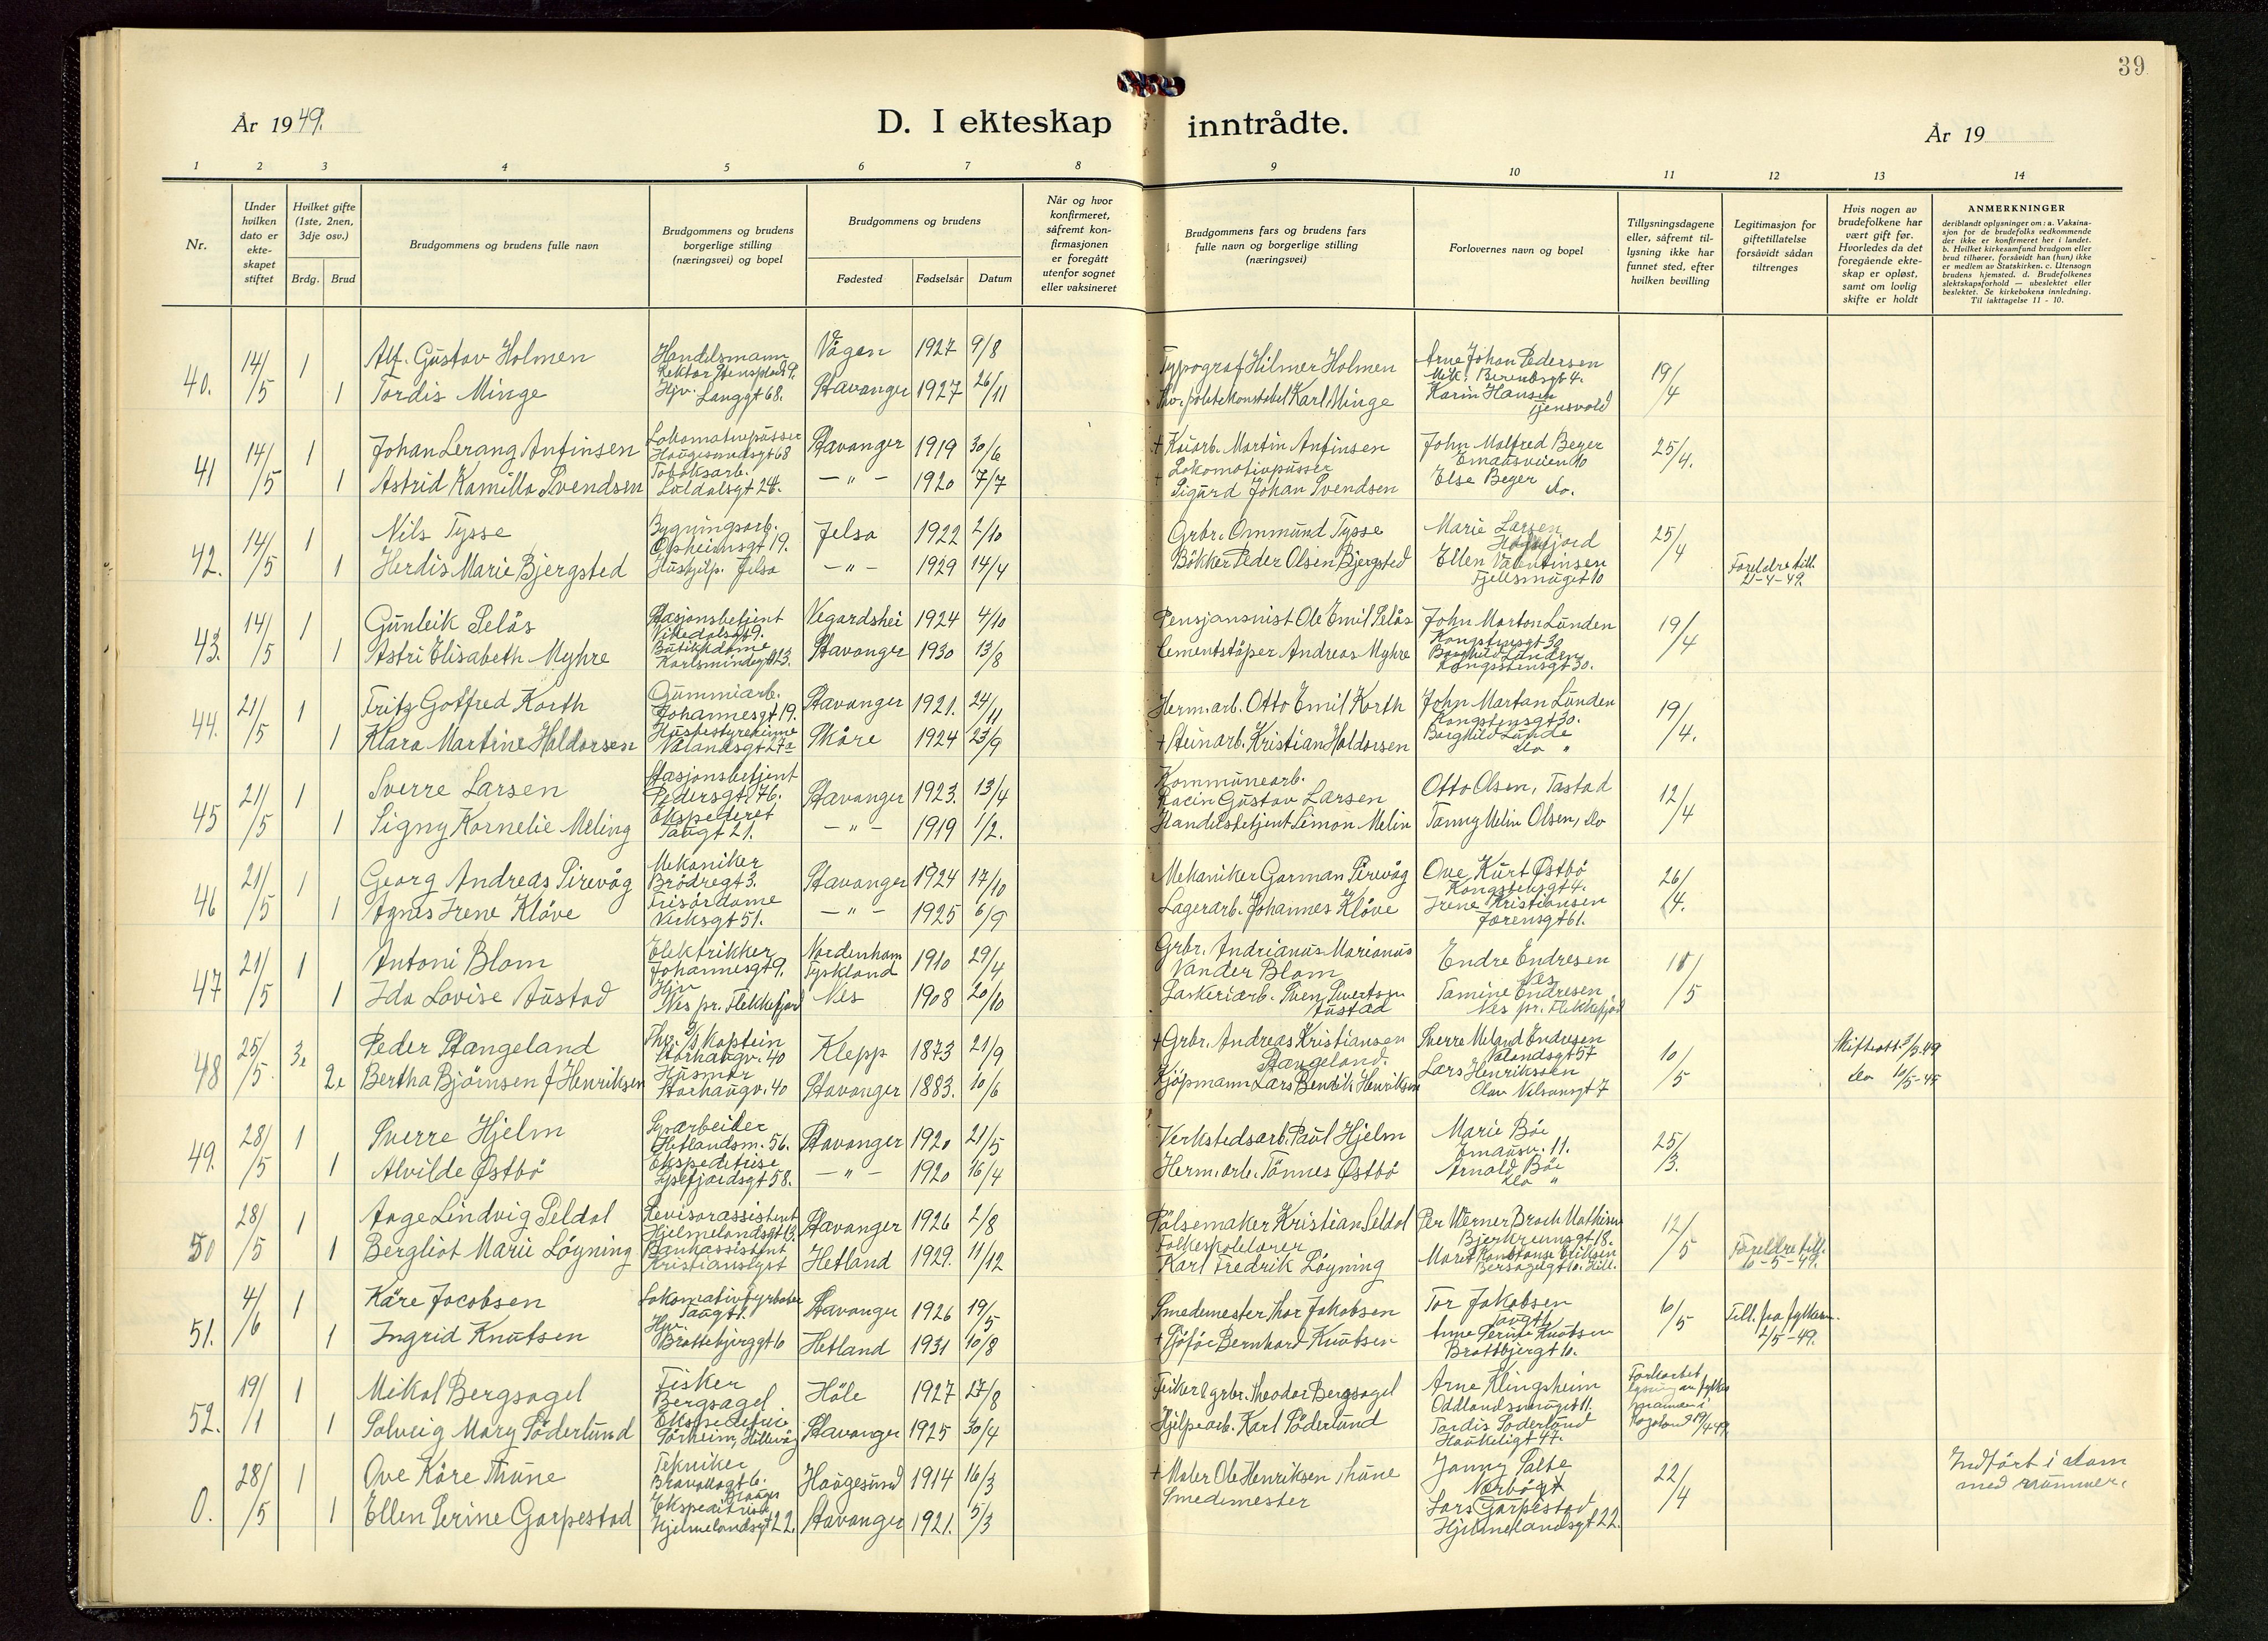 39
År 1949.
D. I ekteskap inntrådte.
År 19
1 2 3 4 5 6 7 8 9 10 11 12 13 14
Nr.
Under
hvilken
dato er
ekte-
skapet
stiftet
Hvilket gifte
(1ste, 2nen,
3dje osv.)
Brdg. Brud
Brudgommens og brudens fulle navn
Brudgommens og brudens
borgerlige stilling
(næringsvei) og bopel
Brudgommens og brudens
Fødested Fødselsår Datum
Når og hvor
konfirmeret,
såfremt kon-
firmasjonen
er foregått
utenfor sognet
eller vaksineret
Brudgommens fars og brudens fars
fulle navn og borgerlige stilling
(næringsvei)
Forlovernes navn og bopel
Tillysningsdagene
eller, såfremt til-
lysning ikke har
funnet sted, efter
hvilken bevilling
Legitimasjon for
giftetillatelse
forsåvidt sådan
tiltrenges
Hvis nogen av
brudefolkene har
vært gift før.
Hvorledes da det
foregående ekte-
skap er opløst,
samt om lovlig
skifte er holdt
ANMERKNINGER
deriblandt oplysninger om: a. Vaksina-
sjon for de brudefolks vedkommende
der ikke er konfirmeret her i landet.
b. Hvilket kirkesamfund brudgom eller
brud tilhører, forsåvidt han (hun) ikke
er medlem av Statskirken. c. Utensogn
brudens hjemsted. d. Brudefolkenes
slektskapsforhold — ubeslektet eller
beslektet. Se kirkebokens innledning.
Til iakttagelse 11 - 10.
40. 14/5 1 Alf. Gustav Holmen Handelsmann 9. Vågan 1927 9/8 Typograf Hilmer Holmen Arne Johan Pedersen 19/4
1 Tordis Minge Hjv. Langgt 68. Stavanger 1927 26/11 Karl Minge Karin Hansen Tjensvold
41 14/5 1 Johan Lerang Anfinsen Lokomotivpusser Haugesundsgt 68 Stavanger 1919 30/6 + Martin Anfinsen John Malfred Beyer Emausveien 10 25/4.
1 Astrid Kamilla Svendsen Tobaksarb. 24. —"— 1920 7/7 + Lokomotivpusser Sigurd Johan Svendsen Else Beyer do.
42. 14/5 1 Nils Tysse Bygningsarb. 19. Jelsa 1922 2/10 Grbr. Ommund Tysse Marie Larsen 25/4
1 Herdis Marie Bjergsted Hushjelp. Jelsa —"— 1929 14/4 Bökker Peder Olsen Bjergsted Ellen Valentinsen 10 Foreldre till. 21-4-49.
43. 14/5 1 Gunleik Selås Stasjonsbetjent Vikedalsgt 9. Vegardshei 1924 4/10 Pensjonist Ole Emil Selås John Morton Lunden Kongstensgt 30 19/4
1 Astri Elisabeth Myhre Butikkdame Stavanger 1930 13/8 Cementstöper Andreas Myhre Borghild Lunden Kongsstensgt 30.
44. 21/5 1 Fritz Gotfred Korth Gummiarb. Johannesgt 19. Stavanger 1921. 24/11 Herm.arb. Otto Emil Korth John Martan Lunden Kongstensgt 30. 19/4.
1 Klara Martine Haldorsen Husbestyrerinne Vålandsgt 27a Skåre 1924 23/9 + Steinarb. Kristian Haldorsen Borghild Lunde do "
45 21/5 1 Sverre Larsen Stasjonsbetjent Pedersgt. 76. Stavanger 1923. 13/4 Kommunearb. Gustav Larsen Otto Olsen, Tastad 12/4
1 Signy Kornelie Meling Taugt 21. —"— 1919 1/2. Handelsbetjent Simon Melin Fanny Melin Olsen, do
46 21/5 1 Georg Andreas Sirevåg Mekaniker Brödregt 3. Stavanger 1924 17/10 Mekaniker Garman Sirevåg Ove Kurt Østbö 26/4.
1 Agnes Irene Klöve Frisördame Verksgt 51. —"— 1925 6/9 Lagerarb. Johannes Klöve Irene Kristiansen 61.
47 21/5 1 Antoni Blom Elektrikker Johannesgt 9. Nordenham Tyskland 1910 29/4 Grbr. Andrianus Marianus Vander Blom Endre Endresen Nes 11/5
1 Ida Lovise Austad Hjv Nes pr. Flekkefjord Nes 1908 20/10 Sven Austad Tamine Endresen Nes pr. Flekkefjord
48 25/5 3e Peder Stangeland Kaptein Storhaugv. 40 Klepp 1873 21/9 + Grbr. Andreas Kristiansen Stangeland. Sverre Meland Endresen Vålandsgt 57 10/5 Skifteatt. 3/5-49
2e Bertha Björnsen f Henriksen Husmor Storhaugv. 40 Stavanger 1883. 10/6 Kjöpmann Lars Bendik Henriksen Lars Henrikssen 7 do 10/5-45
49. 28/5 1 Sverre Hjelm 56. Stavanger 1920 21/5 Verkstedsarb. Paul Hjelm Marie Böe Emausv. 11. 25/3.
1 Alvilde Østbö Ekspeditrise 58. —"— 1920 16/4 Herm.arb. Tönnes Østbö Arnold Böe do "
50 28/5 1 Aage Lindvig Seldal Revisorassistent Hjelmelandsgt 13. Stavanger 1926 2/8 Pölsemaker Kristian Seldal Per Werner Broch Mathisen Bjerkreimsgt 18. 12/5
1 Bergliot Marie Löyning Bankassistent Kristianslyst Hetland 1929. 11/12 Folkeskolelærer Karl Fredrik Löyning Foreldre till. 6-5-49.
51. 4/6 1 Kåre Jacobsen Lokomotivfyrböter Taugt 1. Stavanger 1926 19/5 Smedemester Thor Jakobsen Tor Jakobsen 6/5 Till. fra fylkesm. 2/5-49.
1 Ingrid Knutsen Hjv. Brattebjerggt 10 Hetland 1931 10/8 + Sjåför Bernhard Knutsen Knutsen Brattbjergt 10.
52. 19/1 1 Mikal Bergsagel Fisker Bergsagel Höle 1927 27/8 Fisker & grbr. Theodor Bergsagel Arne Klingsheim 11.
1 Solveig Mary Söderlund Ekspeditrise Sörheim, Hillevåg Stavanger 1925 30/4 Hjelpearb. Karl Söderlund Tordis Söderlund Haukeligt 47.
0. 28/5 1 Ove Kåre Thune Tekniker 6. Haugesund 1914 16/3 + Maler Ole Henriksen Thune Jonny Salte 22/4 Indfört i dom med nummer.
1 Ellen Serine Garpestad Ekspeditrise Hjelmelandsgt 22. Stavanger 1921. 5/3 Smedemester Lars Garpestad Hjelmelandsgt 22.